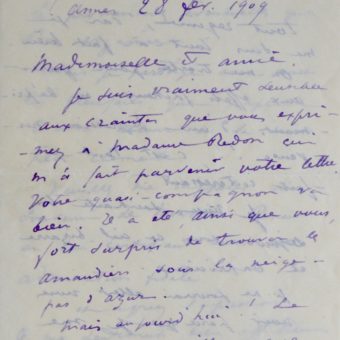 Cannes 28 fév. 1909
Mademoiselle et amie
Je suis vraiment
aux craintes que vous expri-
mez à Madame Redon qui
m'a fait parvenir votre lettre
Votre quasi-compagnon va
bien. Il a été, ainsi que vous,
fort surpris de trouver le
amandiers sous la neige -
pas d'azur.
Mais aujourd'hui ! Le